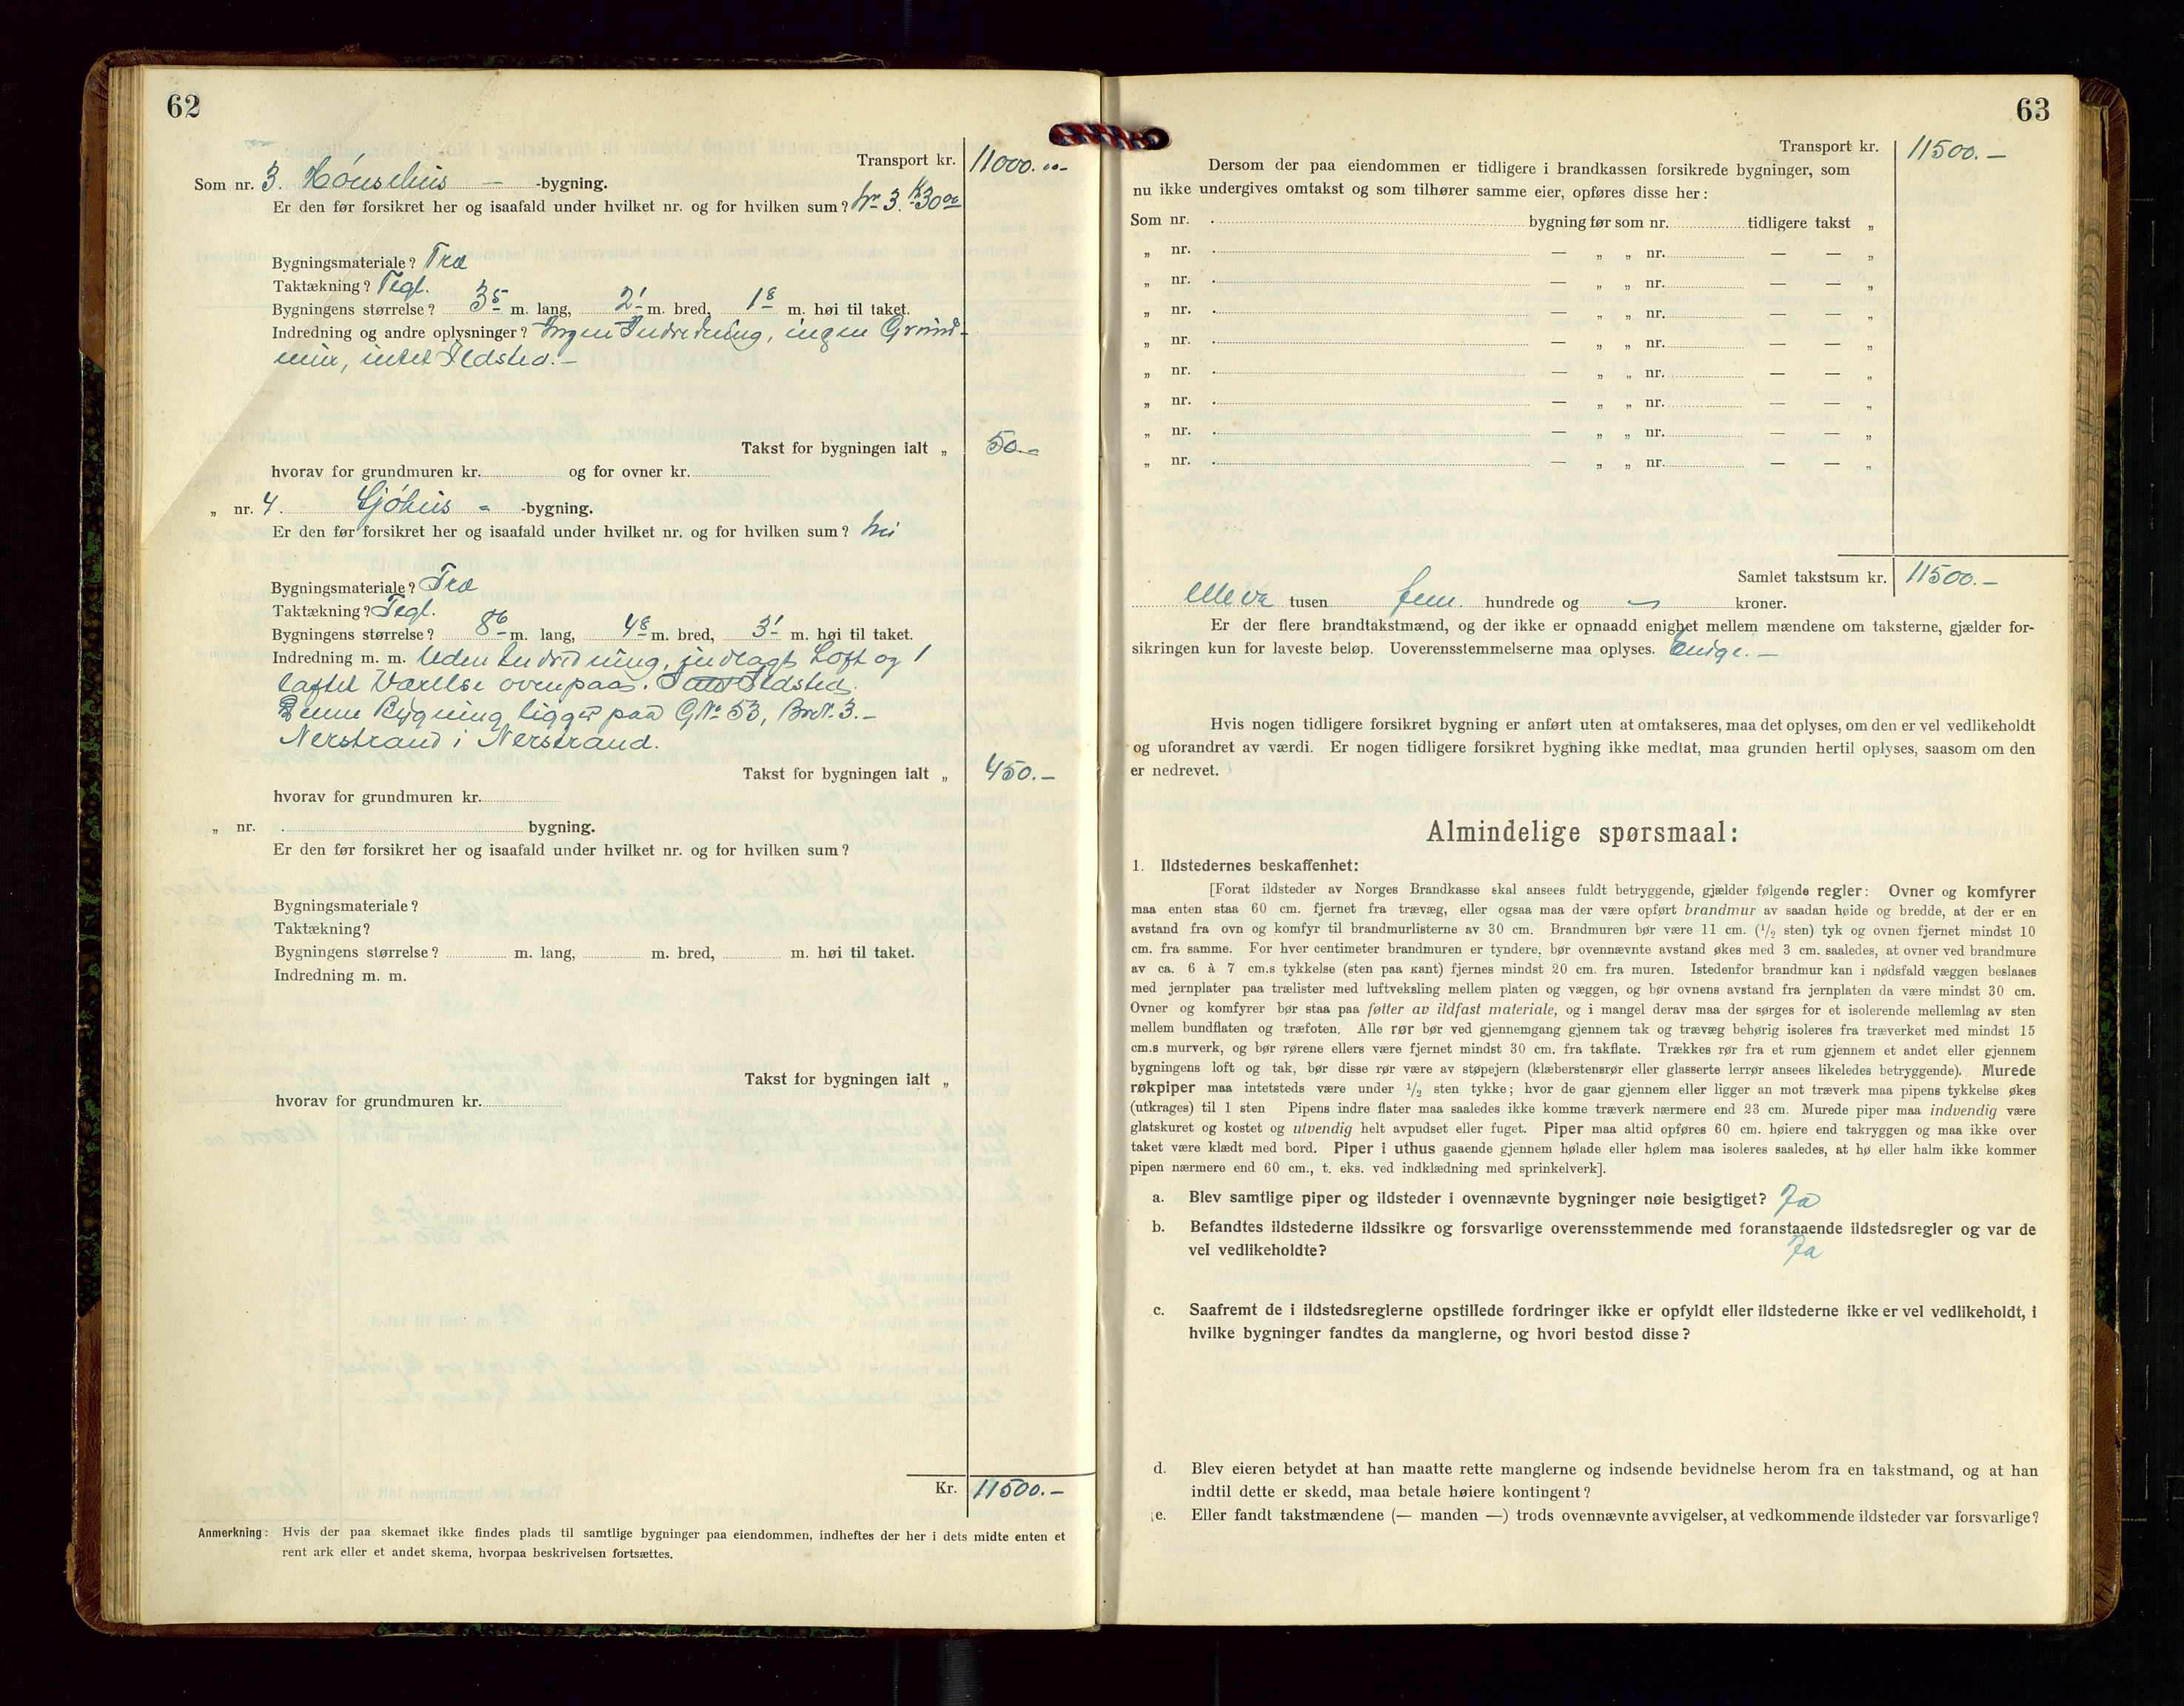 62
Transport kr. 11000.00
Som nr. 3. Hönsehus - -bygning.
Er den før forsikret her og isaafald under hvilket nr. og for hvilken sum? Nr 3. K 30 00
Bygningsmateriale? Træ
Taktækning? Tegl.
Bygningens størrelse? 3⁵ m. lang, 2¹ m. bred, 1⁸ m. høi til taket.
Indredning og andre oplysninger? Ingen Indredning, ingen Grund-
mur, intet Ildsted.-
Takst for bygningen ialt „ 50.-
hvorav for grundmuren kr. og for ovner kr.
„ nr. 4. Sjöhus - -bygning.
Er den før forsikret her og isaafald under hvilket nr. og for hvilken sum? Nei
Bygningsmateriale? Træ
Taktækning? Tegl.
Bygningens størrelse? 8⁶ m. lang, 4⁸ m. bred, 3¹ m. høi til taket.
Indredning m. m. Uden Indredning, indlagt Loft og 1
laftet Værelse ovenpaa. Ildsted.
Denne Bygning ligger paa GNo 53, BrN. 3.-
Nerstrand i Nerstrand.
Takst for bygningen ialt „ 450.-
hvorav for grundmuren kr.
„ nr. bygning.
Er den før forsikret her og isaafald under hvilket nr. og for hvilken sum?
Bygningsmateriale?
Taktækning?
Bygningens størrelse? m. lang, m. bred, m. høi til taket.
Indredning m. m.
Takst for bygningen ialt „
hvorav for grundmuren kr.
Kr. 11500.-
Anmerkning: Hvis der paa skemaet ikke findes plads til samtlige bygninger paa eiendommen, indheftes der her i dets midte enten et
rent ark eller et andet skema, hvorpaa beskrivelsen fortsættes.
63
Transport kr. 11500.-
Dersom der paa eiendommen er tidligere i brandkassen forsikrede bygninger, som
nu ikke undergives omtakst og som tilhører samme eier, opføres disse her:
Som nr. bygning før som nr. tidligere takst „
„ nr. — „ „ nr. — — „
„ nr. — „ „ nr. — — „
„ nr. — „ „ nr. — — „
„ nr. — „ „ nr. — — „
„ nr. — „ „ nr. — — „
„ nr. — „ „ nr. — — „
„ nr. — „ „ nr. — — „
„ nr. — „ „ nr. — — „
Samlet takstsum kr. 11500.-
Elleve tusen fem hundrede og - kroner.
Er der flere brandtakstmænd, og der ikke er opnaadd enighet mellem mændene om taksterne, gjælder for-
sikringen kun for laveste beløp. Uoverensstemmelserne maa oplyses. Enige.-
Hvis nogen tidligere forsikret bygning er anført uten at omtakseres, maa det oplyses, om den er vel vedlikeholdt
og uforandret av værdi. Er nogen tidligere forsikret bygning ikke medtat, maa grunden hertil oplyses, saasom om den
er nedrevet.
Almindelige spørsmaal:
1. Ildstedernes beskaffenhet:
[Forat ildsteder av Norges Brandkasse skal ansees fuldt betryggende, gjælder følgende regler: Ovner og komfyrer
maa enten staa 60 cm. fjernet fra trævæg, eller ogsaa maa der være opført brandmur av saadan høide og bredde, at der er en
avstand fra ovn og komfyr til brandmurlisterne av 30 cm. Brandmuren bør være 11 cm. (1/2 sten) tyk og ovnen fjernet mindst 10
cm. fra samme. For hver centimeter brandmuren er tyndere, bør ovennævnte avstand økes med 3 cm. saaledes, at ovner ved brandmure
av ca. 6 à 7 cm.s tykkelse (sten paa kant) fjernes mindst 20 cm. fra muren. Istedenfor brandmur kan i nødsfald væggen beslaaes
med jernplater paa trælister med luftveksling mellem platen og væggen, og bør ovnens avstand fra jernplaten da være mindst 30 cm.
Ovner og komfyrer bør staa paa føtter av ildfast materiale, og i mangel derav maa der sørges for et isolerende mellemlag av sten
mellem bundflaten og træfoten. Alle rør bør ved gjennemgang gjennem tak og trævæg behørig isoleres fra træverket med mindst 15
cm.s murverk, og bør rørene ellers være fjernet mindst 30 cm. fra takflate. Trækkes rør fra et rum gjennem et andet eller gjennem
bygningens loft og tak, bør disse rør være av støpejern (klæberstensrør eller glasserte lerrør ansees likeledes betryggende). Murede
røkpiper maa intetsteds være under 1/2 sten tykke; hvor de gaar gjennem eller ligger an mot træverk maa pipens tykkelse økes
(utkrages) til 1 sten Pipens indre flater maa saaledes ikke komme træverk nærmere end 23 cm. Murede piper maa indvendig være
glatskuret og kostet og utvendig helt avpudset eller fuget. Piper maa altid opføres 60 cm. høiere end takryggen og maa ikke over
taket være klædt med bord. Piper i uthus gaaende gjennem hølade eller hølem maa isoleres saaledes, at hø eller halm ikke kommer
pipen nærmere end 60 cm., t. eks. ved indklædning med sprinkelverk].
a. Blev samtlige piper og ildsteder i ovennævnte bygninger nøie besigtiget? Ja
b. Befandtes ildstederne ildssikre og forsvarlige overensstemmende med foranstaaende ildstedsregler og var de
vel vedlikeholdte? Ja
c. Saafremt de i ildstedsreglerne opstillede fordringer ikke er opfyldt eller ildstederne ikke er vel vedlikeholdt, i
hvilke bygninger fandtes da manglerne, og hvori bestod disse?
d. Blev eieren betydet at han maatte rette manglerne og indsende bevidnelse herom fra en takstmand, og at han
indtil dette er skedd, maa betale høiere kontingent?
e. Eller fandt takstmændene (— manden —) trods ovennævnte avvigelser, at vedkommende ildsteder var forsvarlige?